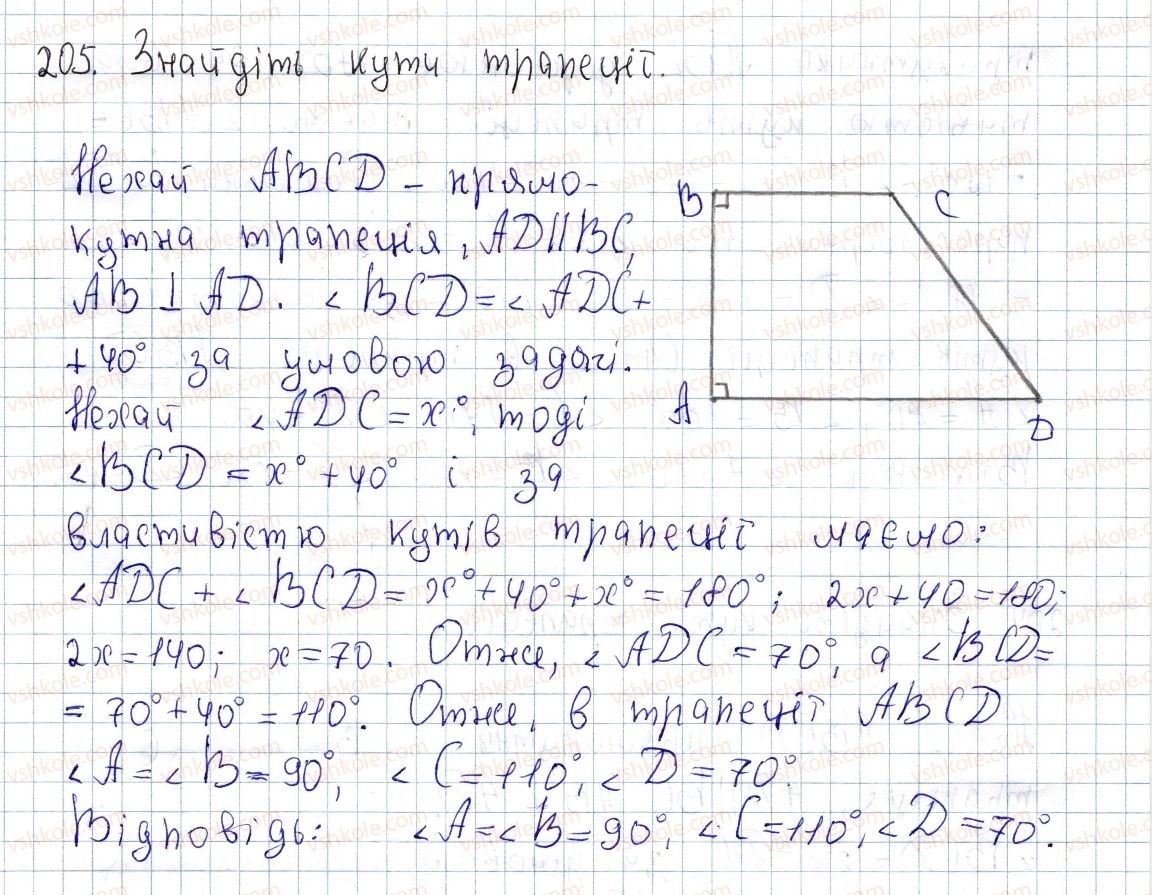 205. Знайдіть кути трапеції.
Нехай ABCD – прямо-
кутна трапеція, AD||BC,
AB ⊥ AD. ∠BCD = ∠ADC +
+ 40° за умовою задачі.
Нехай ∠ADC = x°, тоді
∠BCD = x° + 40° і за
властивістю кутів трапеції маємо:
∠ADC + ∠BCD = x° + 40° + x° = 180°; 2x + 40 = 180;
2x = 140; x = 70. Отже, ∠ADC = 70°, а ∠BCD =
= 70° + 40° = 110°. Отже, в трапеції ABCD
∠A = ∠B = 90°, ∠C = 110°, ∠D = 70°.
Відповідь: ∠A = ∠B = 90°, ∠C = 110°, ∠D = 70°.
B
C
A
D
vshkole.com